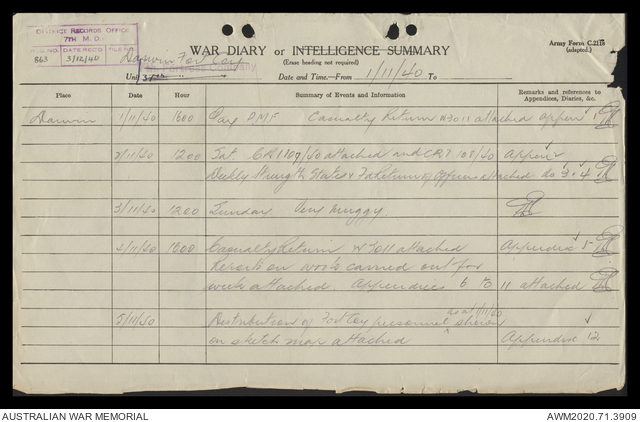 DISTRICT RECORDS OFFICE
7TH M.D.
REG. NO. DATE REC'D FILE No
863 3/12/40
WAR DIARY or INTELLIGENCE SUMMARY
(Erase heading not required)
Army Form C.2118
(adapted.)
Darwin Fort Coy
Unit
Date and Time—From 1/11/40 To
Place Date Hour Summary of Events and Information Remarks and references to
Appendices, Diaries, &c.
Darwin 1/11/40 1600 Pay Casualty Return W3011 attached Appen 1
2/11/40 1200 Sat. attached and 108/40 Appen 2
Weekly Strength States & Return of Officers attached do 3. 4
3/11/40 1200 Sunday Very muggy
4/11/40 1600 Casualty Return W 3011 attached Appendix 5
Reports on work carried out for
week attached Appendices 6 to 11 attached
as at 1/11/40
5/11/40 Distribution of Fort Coy personnel shewn
on sketch map attached Appendix 12
AUSTRALIAN WAR MEMORIAL AWM2020.71.3909